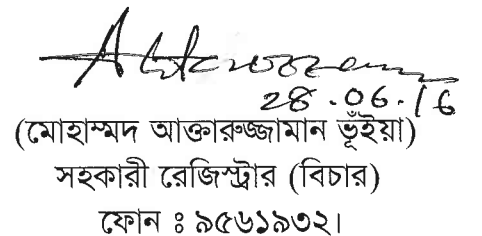 28.06.16
(মোহাম্মদ আক্তারুজ্জামান ভূঁইয়া)
সহকারী রেজিস্ট্রার (বিচার)
ফোন ঃ ৯৫৬১৯৩২।